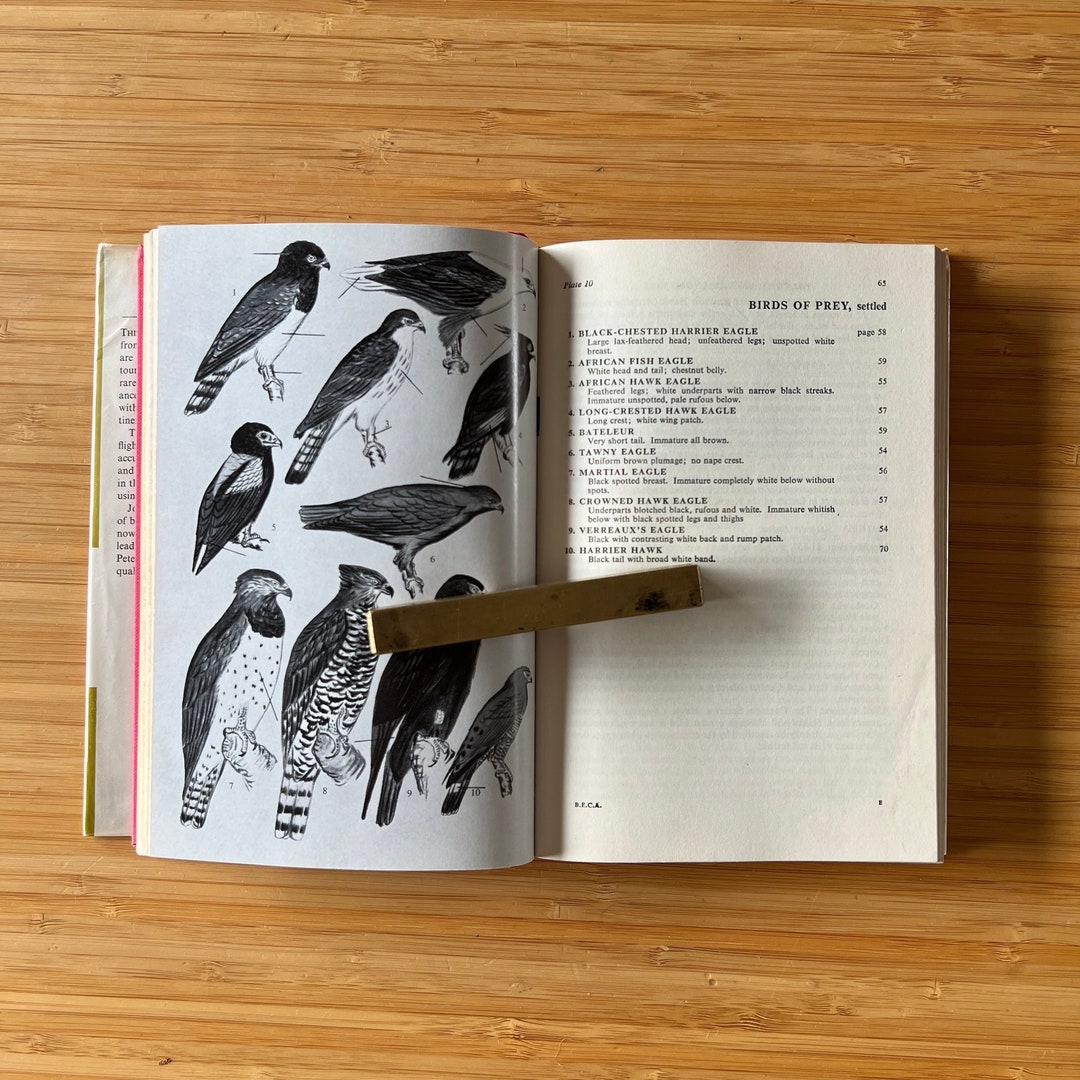 THIS
from
are
tour
rare
ance
with
tine
T
fligh
accu
and
in th
using
Jo
of b
lead
Pete
qual
1
2
3
4
5
6
7
8
9
10
Plate 10 65
BIRDS OF PREY, settled
1. BLACK-CHESTED HARRIER EAGLE page 58
Large lax-feathered head; unfeathered legs; unspotted white
breast.
2. AFRICAN FISH EAGLE 59
White head and tail; chestnut belly.
3. AFRICAN HAWK EAGLE 55
Feathered legs; white underparts with narrow black streaks.
Immature unspotted, pale rufous below.
4. LONG-CRESTED HAWK EAGLE 57
Long crest; white wing patch.
5. BATELEUR 59
Very short tail. Immature all brown.
6. TAWNY EAGLE 54
Uniform brown plumage; no nape crest.
7. MARTIAL EAGLE 56
Black spotted breast. Immature completely white below without
spots.
8. CROWNED HAWK EAGLE 57
Underparts blotched black, rufous and white. Immature whitish
below with black spotted legs and thighs
9. VERREAUX'S EAGLE 54
Black with contrasting white back and rump patch.
10. HARRIER HAWK 70
Black tail with broad white band.
B.E.C.A. E